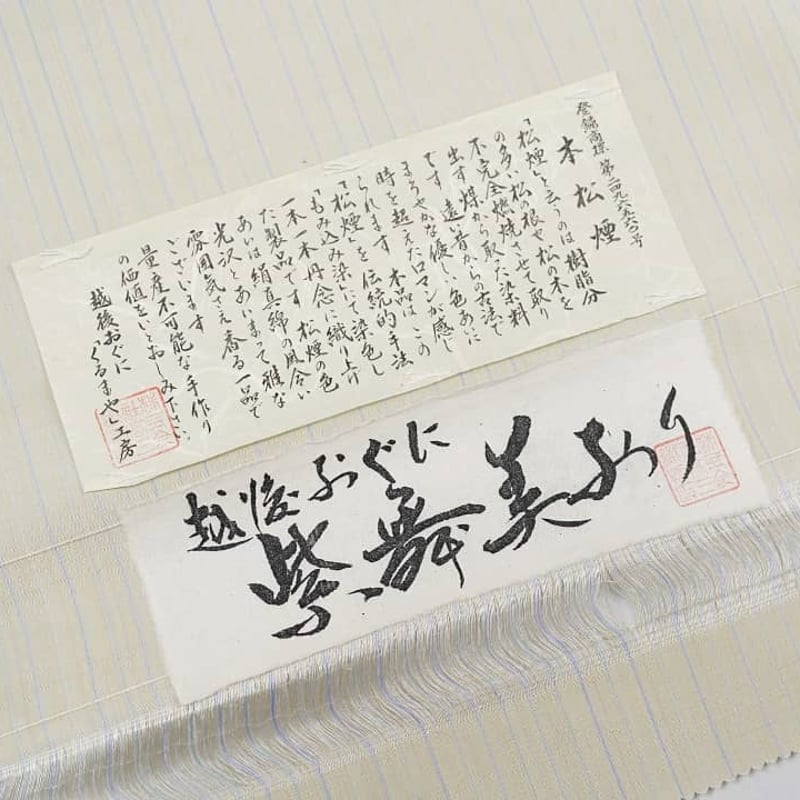 登録商標 第二四九六五六六号
本松煙
「松煙」と云うのは樹脂分
の多い松の根や、松の木を
不完全燃焼させて取り
出す煤から取った染料
です 遠い昔からの古法で
まろやかな優しい色あいに
時を超えたロマンが感じ
られます 本品は、この
「松煙」を伝統的手法
「もみ込み染」にて染色し
一本一本丹念に織り上げ
た製品です。松煙の色
あいは絹真綿の風合い
光沢とあいまって雅な
雰囲気さえ香る一品で
ございます
量産不可能な手作り
の価値をいとおしみ下さい
越後おぐに
「くるまや」工房
越後おぐに
紫舞美おり